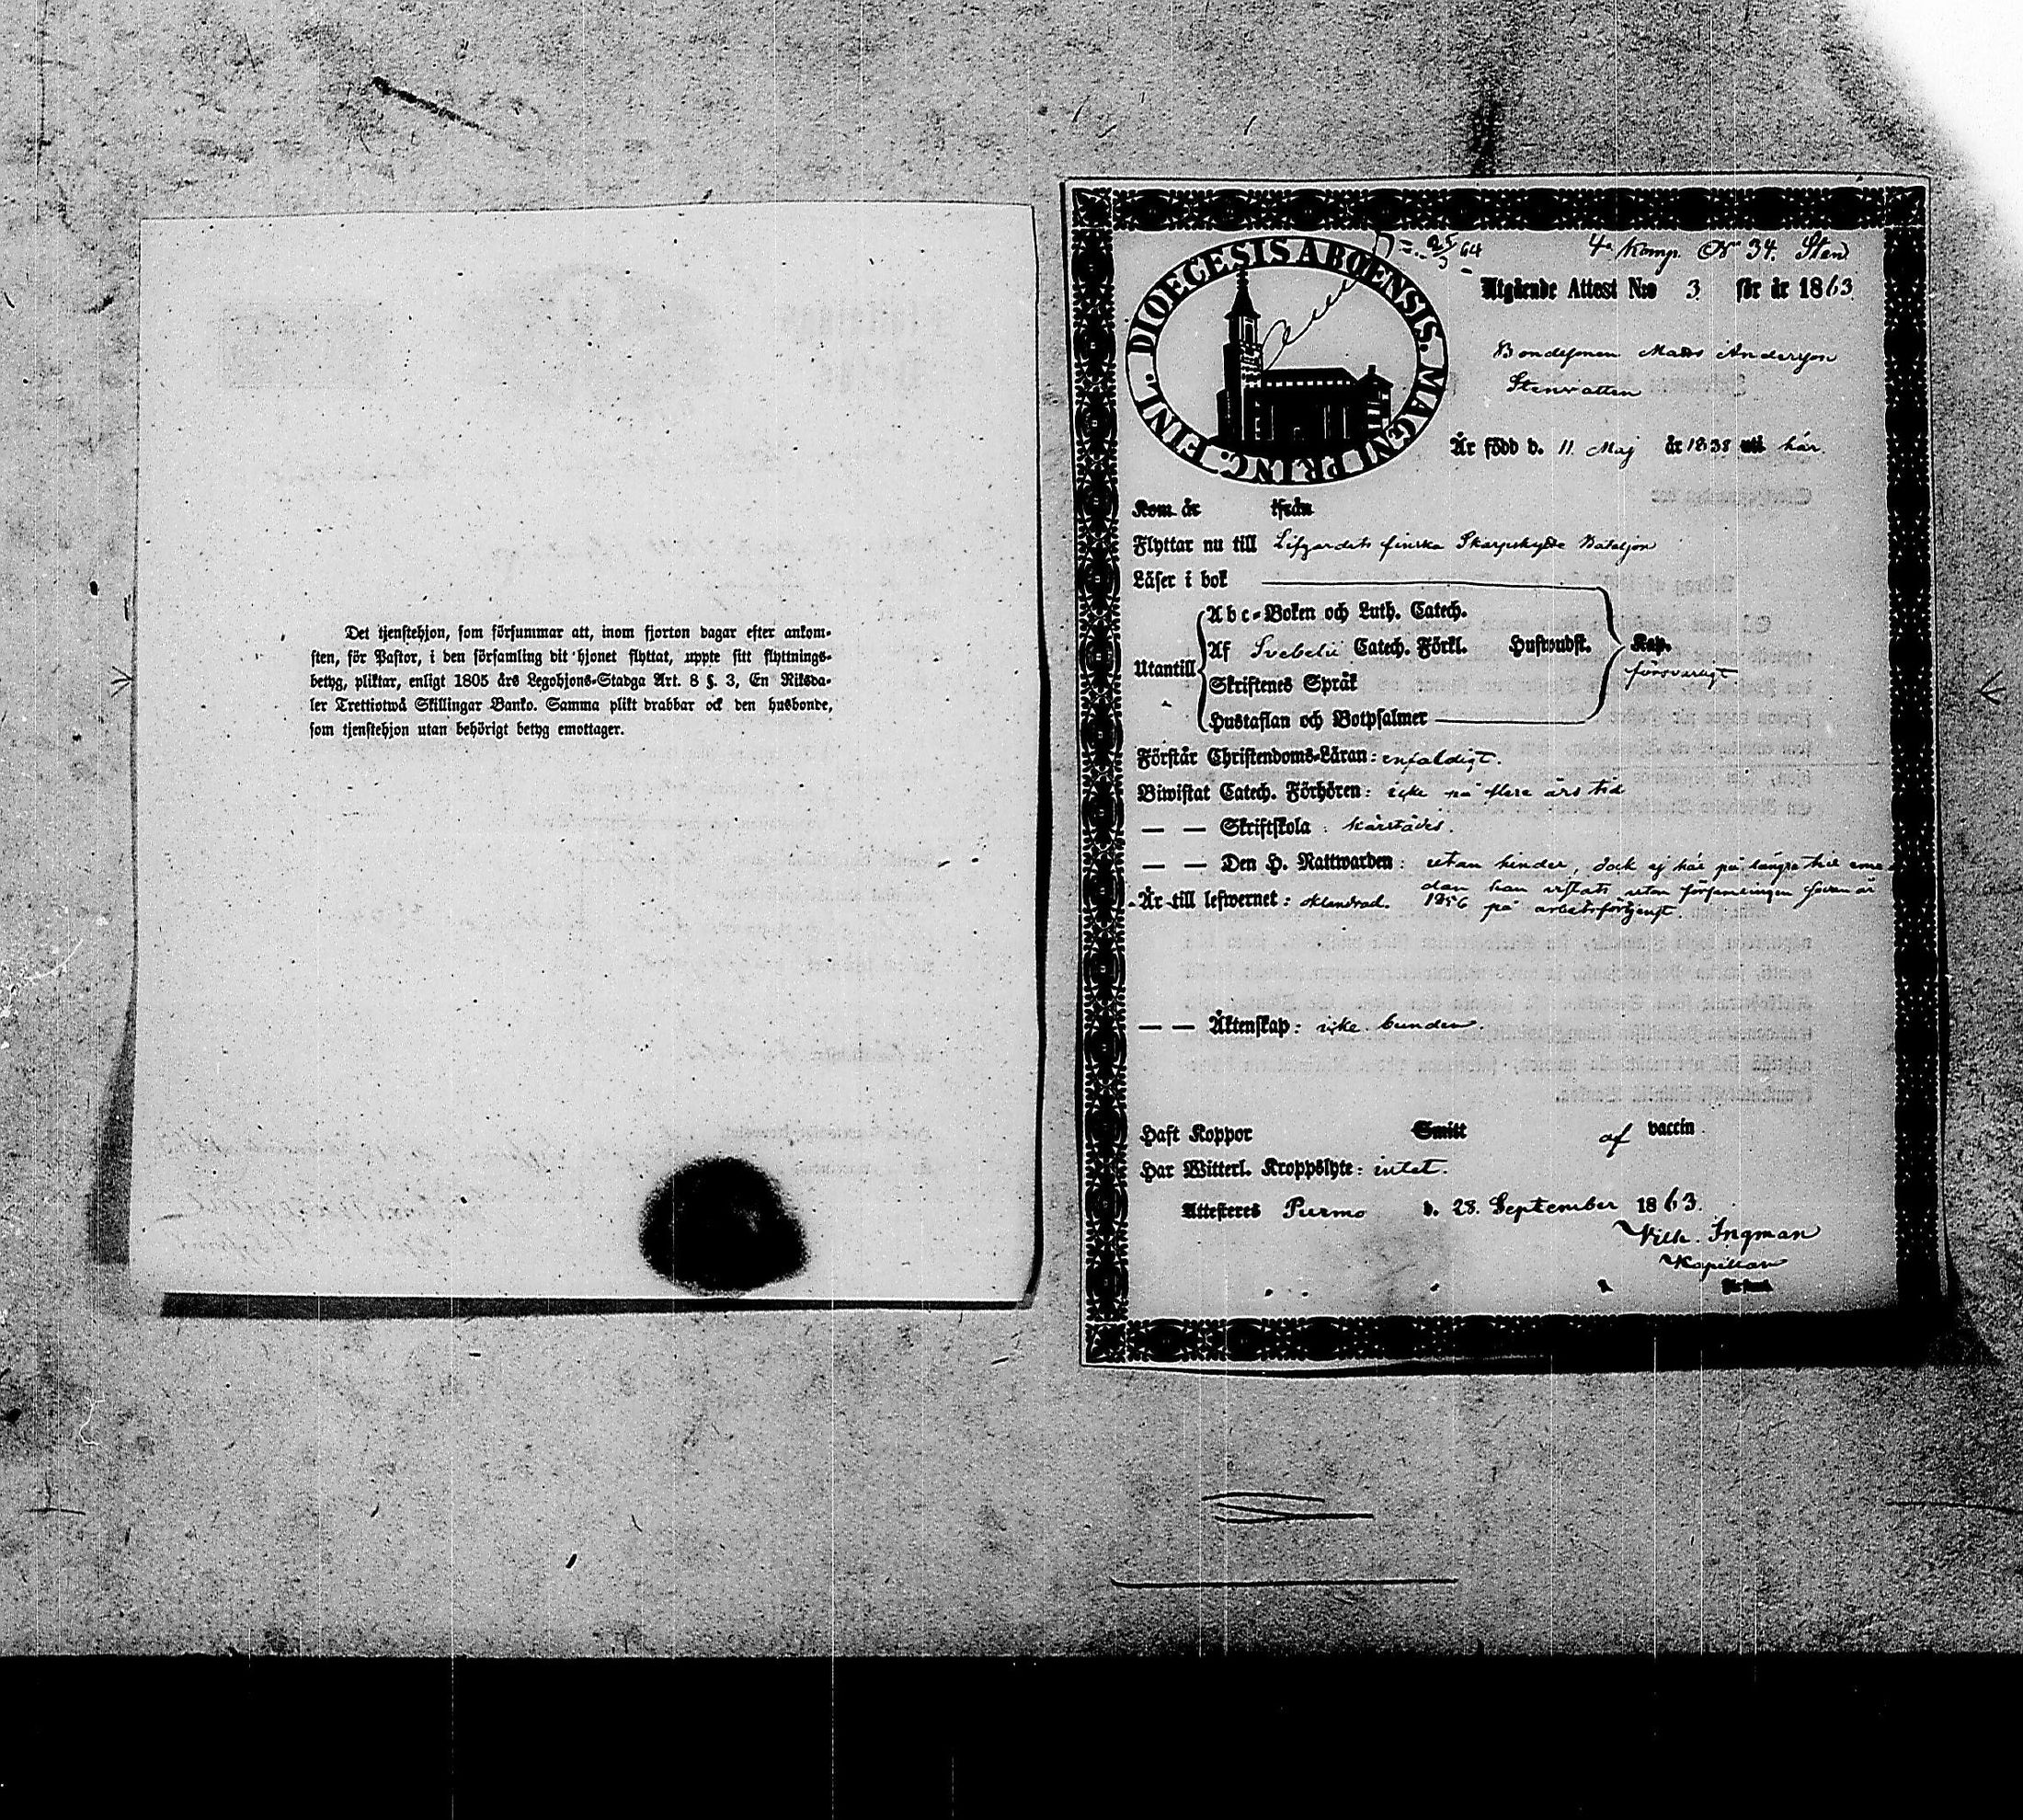 Det tjenstehjon, som försummar att, inom fjorton dagar efter ankom-
sten, för Pastor, i den församling dit hjonet flyttat, uppte sitt flyttnings-
betyg, pliktar, enligt 1805 års Legohjons-Stadga Art. 8 §. 3, En Riksda-
ler Trettiotwå Skillingar Banko. Samma plikt drabbar ock den husbonde,
som tjenstehjon utan behörigt betyg emottager.
DIOECESIS ABOENSIS. MAGNI PRINC. FINL.
4a Komp. No 34. Sten
Utgående Attest N:o 3 för år 1863
Bondesonen Mats Andersson
Stenvatten
Är född d. 11 Maj år 1838 uti här.
Kom år ifrån
Flyttar nu till Lifgardets finska Skarpskytte Bataljon
Läser i bok
Abc-Boken och Luth. Catech.
Utantill Af Svebelii Catech. Förkl. Huswudst. Kap.
försvarligt
Skriftenes Språk
Hustaflan och Botpsalmer
Förstår Christendoms-Läran: enfaldigt.
Biwistat Catech. Förhören: icke på flere års tid
— — Skriftskola: härstädes.
— — Den H. Nattwarden: utan hinder, dock ej här på längre tid eme-
dan han vistats utom församlingen sedan år
Är till lefwernet: oklandrad. 1856 på arbetsförtjenst.
— — Äktenskap: icke bunden.
Haft Koppor Smitt af vaccin.
Har Witterl. Kroppslyte: intet.
Attesteres Purmo d. 28 September 1863.
Wilh. Ingman
Kapellan